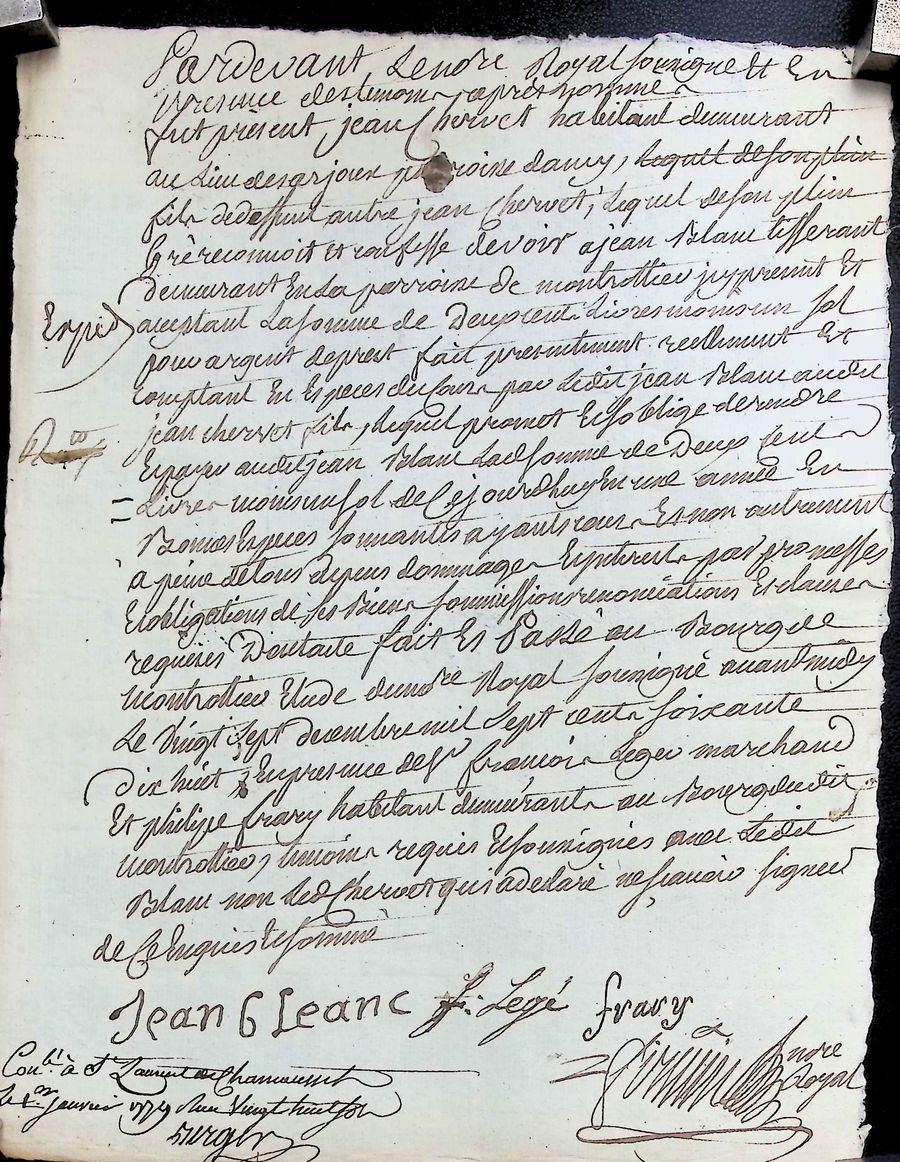 Pardevant Le no.re Royal soussigné Et En
presence des temoins après nommes
fut présent jean Chervet habitant demeurant
au Lieu desarjoux paroisse dancy, lequel de son plein
fils de deffunt autre jean Chervet, lequel de son plein
Gré reconnoit Et confesse devoir a jean Blanc tisserant
demeurant En la parroisse de montrottier, jcy present Et
acceptant La somme de Deux cent Livres moins un sol
pour argent de prest fait presentement reellement Et
comptant En Especes du Cour par Ledit jean Blanc audit
jean chervet fils, lequel promet Et s'oblige de rendre
Et payer audit jean Blanc Lad somme de Deux Cents
Livres moins un sol de Ce jourdhuy En une année En
Bonnes Especes sonnantes ayants cours Et non autrement
a peine de tous depens dommages Et jnterets par promesses
Et obligations de ses Biens soumissions renonciations Et clauses
requises Dont acte fait Et Passé au Bourg de
Montrottier Etude du no.re Royal soussigné avant midy
Le Vingt sept decembre mil sept cents soixante
Dix huit, En presence de Sr françois Legé marchand
Et philipe frary habitant demeurants au Bourg dudit
Montrottier, temoins requis Et soussignés avec Ledit
Blanc non Led Chervet qui a declaré ne sçavoir signer
de Ce Enquis Et sommé
Expéd
Jean bleanc f: Legé frary
no.re
Royal
Con.lé à St Laurent de Chamousset
Le 1.er janvier 1779 Reçu Vingt huit sols